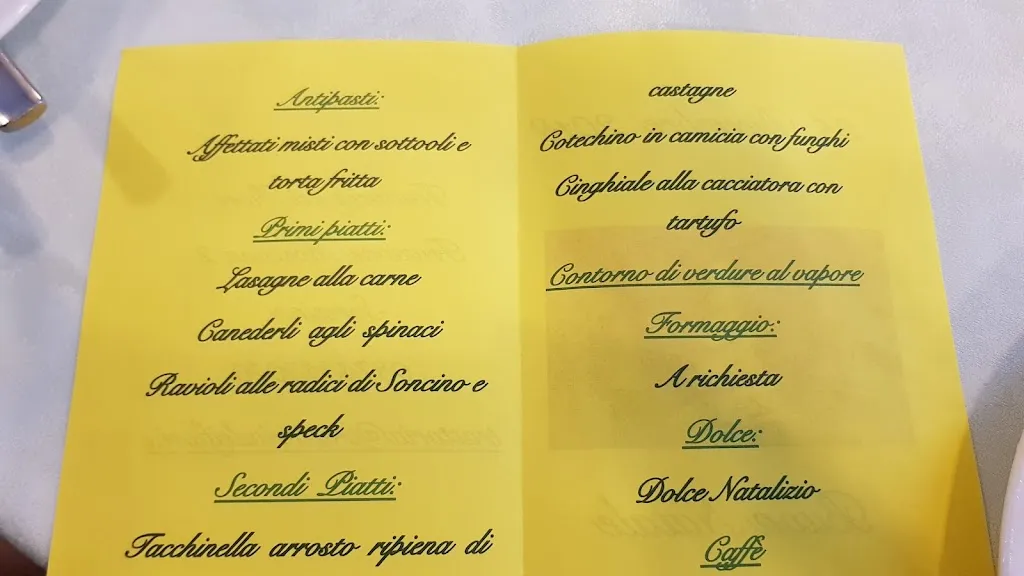 Antipasti:
Affettati misti con sottooli e
torta fritta
Primi piatti:
Lasagne alla carne
Canederli agli spinaci
Ravioli alle radici di Soncino e
speck
Secondi Piatti:
Tacchinella arrosto ripiena di
castagne
Cotechino in camicia con funghi
Cinghiale alla cacciatora con
tartufo
Contorno di verdure al vapore
Formaggio:
A richiesta
Dolce:
Dolce Natalizio
Caffè